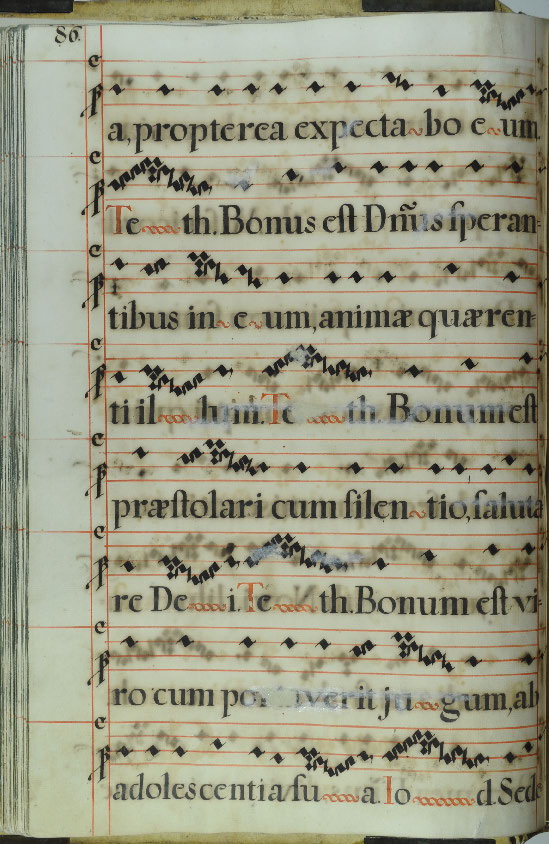 86.
a, propterea expecta~bo e~um.
Te~th. Bonus est Dn̄us speran-
tibus in~e~um, animæ quæren-
ti il~lum. Te~th. Bonum est
præstolari cum silen~tio, saluta
re De~i. Te~th. Bonum est vi-
ro cum portaverit ju~gum, ab
adolescentia su~a. Io~d. Sede